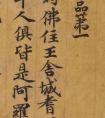 品第一
佛住王舍城耆
千人俱皆是阿羅